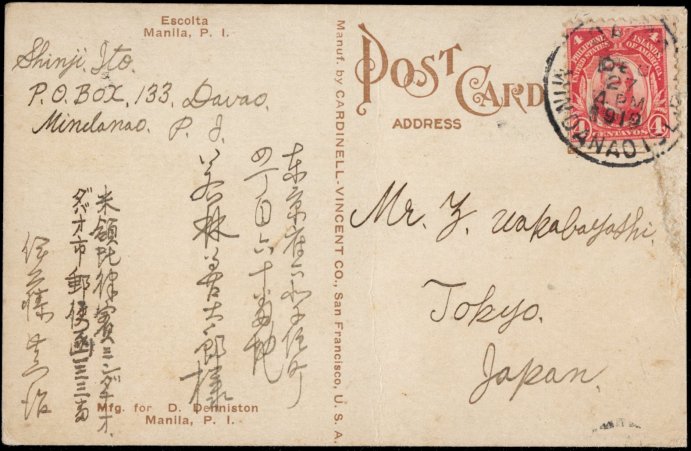 Escolta
Manila, P. I.
Shinji Ito.
P.O. BOX, 133, Davao.
Mindanao. P. I.
米領比律賓ミンダナオ
ダバオ市郵便函一三三号
伊藤
Manuf. by CARDINELL-VINCENT CO., San Francisco, U. S. A.
POST CARD
ADDRESS
東京
四丁目六十番地
若林
様
Mr. Y. Wakabayashi.
Tokyo.
Japan.
PHILIPPINE ISLANDS
UNITED STATES OF AMERICA
4 CENTAVOS 4
27
4 PM
1919
MINDANAO
Mfg. for D. Denniston
Manila, P. I.